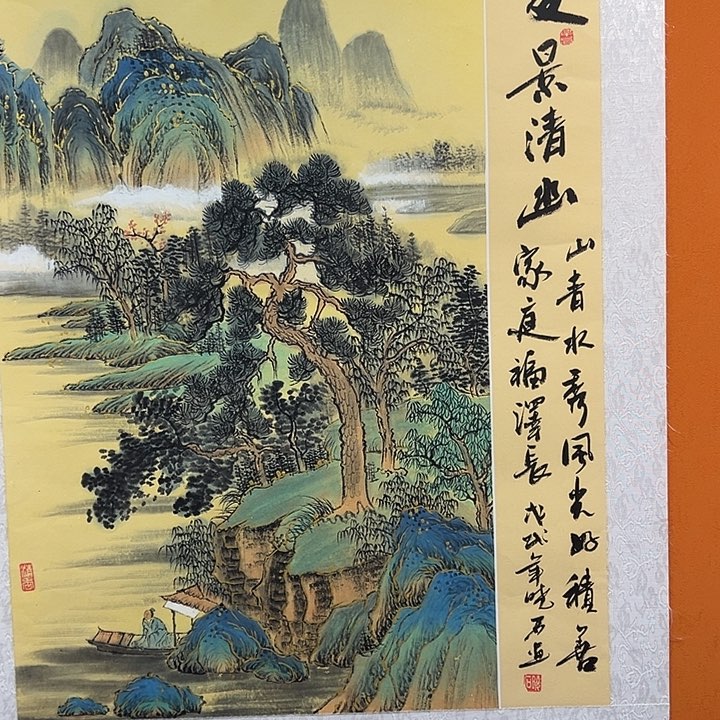 景清幽
山青水秀风光好積善
家庭福澤長
戊戌年晓石画